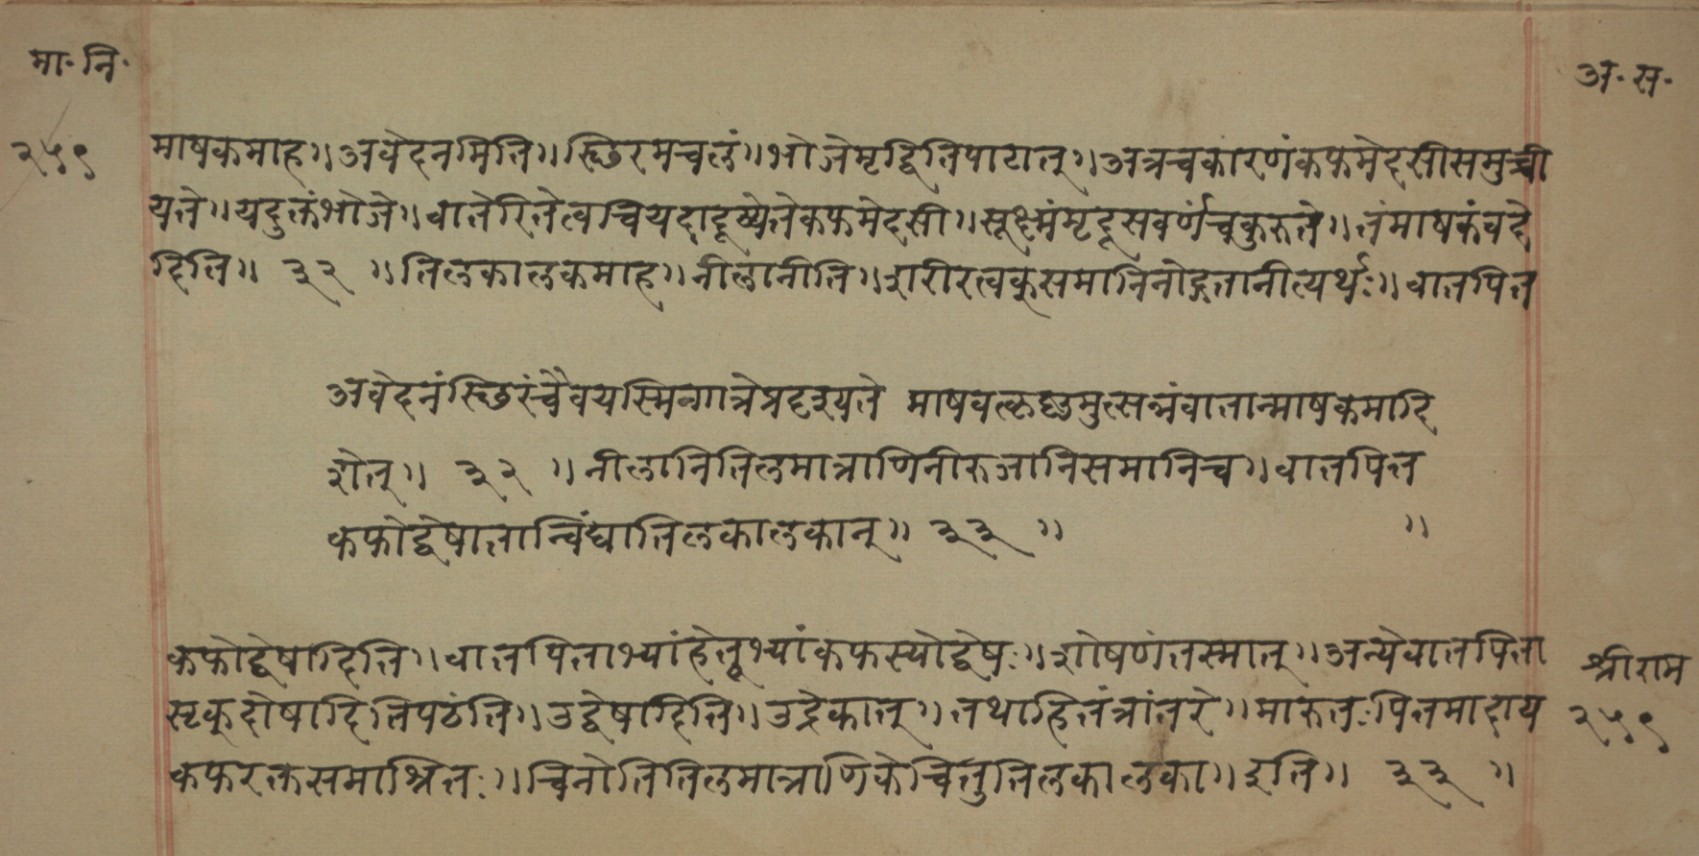 मा॰ नि॰
अ॰ स॰
२५९
माषकमाह॥ अवेदनमिति॥ स्थिरमचलं॥ भोजेमृद्वितिपाठात्॥ अत्रचकारणंकफमेदसीसमुच्ची
यते॥ यदुक्तंभोजे॥ वातेरितेत्वचियदादूष्येतेकफमेदसी॥ सूक्ष्मंमृदूसवर्णंचकुरुते॥ तंमाषकंवदे
दिति॥ ३२ ॥ तिलकालकमाह॥ नीलानीति॥ शरीरत्वक्समानिनोद्गतानीत्यर्थः॥ वातपित्त
अवेदनंस्थिरंचैवयस्मिन्गात्रेप्रदृश्यते माषवत्कृष्णमुत्सन्नंवातान्माषकमादि
शेत्॥ ३२ ॥ नीलानितिलमात्राणिनीरुजानिसमानिच॥ वातपित्त
कफोद्वेषात्तान्विंद्यात्तिलकालकान्॥ ३३ ॥ ॥
कफोद्वेषादिति॥ वातपित्ताभ्यांहेतूभ्यांकफस्योद्वेषः॥ शोषणंतस्मात्॥ अन्येवातपित्ता
सृक्दोषादितिपठंति॥ उद्वेषादिति॥ उद्रेकात्॥ तथाहितंत्रांतरे॥ मारुतःपित्तमादाय
कफरक्तसमाश्रितः॥ चिनोतितिलमात्राणिकेचित्तुतिलकालका॥ इति॥ ३३ ॥
श्रीराम
२५९